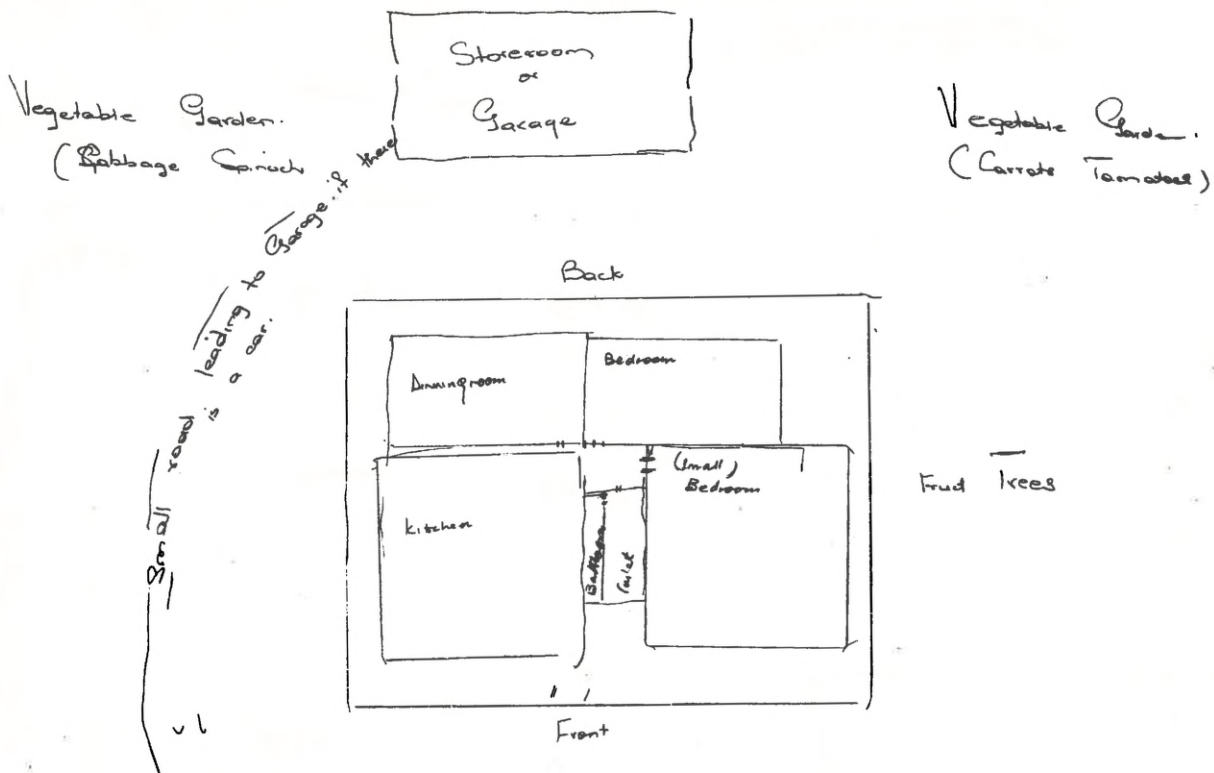 Storeroom
or
Garage
Vegetable Garden.
(Cabbage Spinach
Vegetable Garden.
(Carrots Tomatoes)
Small road leading to Garage if there
is a car.
Back
Dinningroom
Bedroom
(Small)
Bedroom
Kitchen
Bathroom
Toilet
Fruit Trees
Front